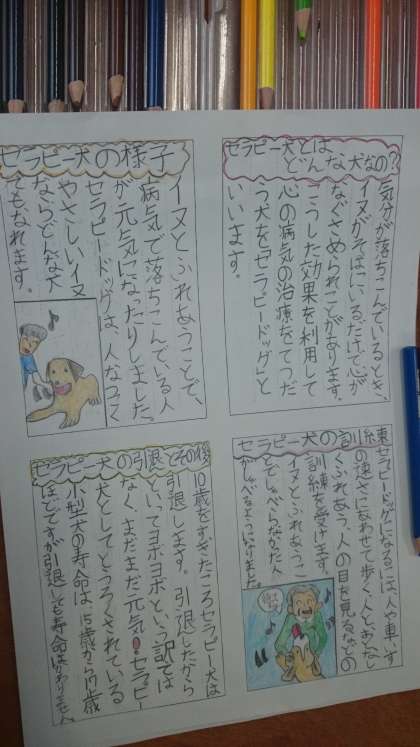 セラピー犬とは
どんな犬なの？
気分が落ちこんでいるとき、
イヌがそばにいるだけで心が
なぐさめられことがあります。
こうした効果を利用して
心の病気の治療をてつだ
う犬をセラピードッグ」と
いいます。
セラピー犬の様子
イヌとふれあうことで、
病気で落ちこんでいる人
が元気になったりしました。
セラピードッグは、人なつっこく
やさしいイヌ
ならどんな犬
でもなれます。
セラピー犬の訓練
セラピードッグになるには、人や車いす
の速さにあわせて歩く、人とあんしん
してふれあう、人の目を見るなどの
訓練を受けます。
イヌとふれあうこ
セラピー犬の引退とその後
10歳をすぎたころセラピー犬は
引退します。引退したから
といってヨボヨボという訳では
なく、まだまだ元気！セラピー
犬として
されている
小型犬の寿命は、15歳から
ほどですが引退しても寿命はかわりません